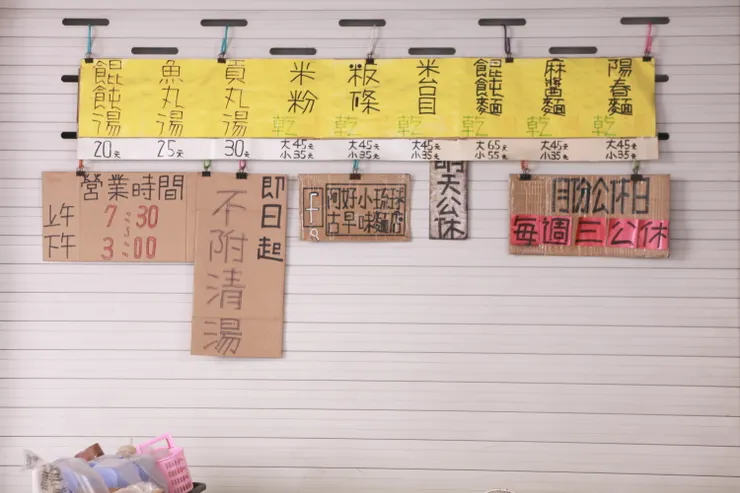 陽春麵 乾 大45元 小35元
麻醬麵 乾 大45元 小35元
餛飩麵 乾 大65元 小55元
米台目 乾 大45元 小35元
粄條 乾 大45元 小35元
米粉 乾 大45元 小35元
貢丸湯 30元
魚丸湯 25元
餛飩湯 20元
營業時間
上午 7:30
下午 3:00
即日起
不附清湯
阿好小琉球
古早味麵店
天公休
月份公休日
每週三公休